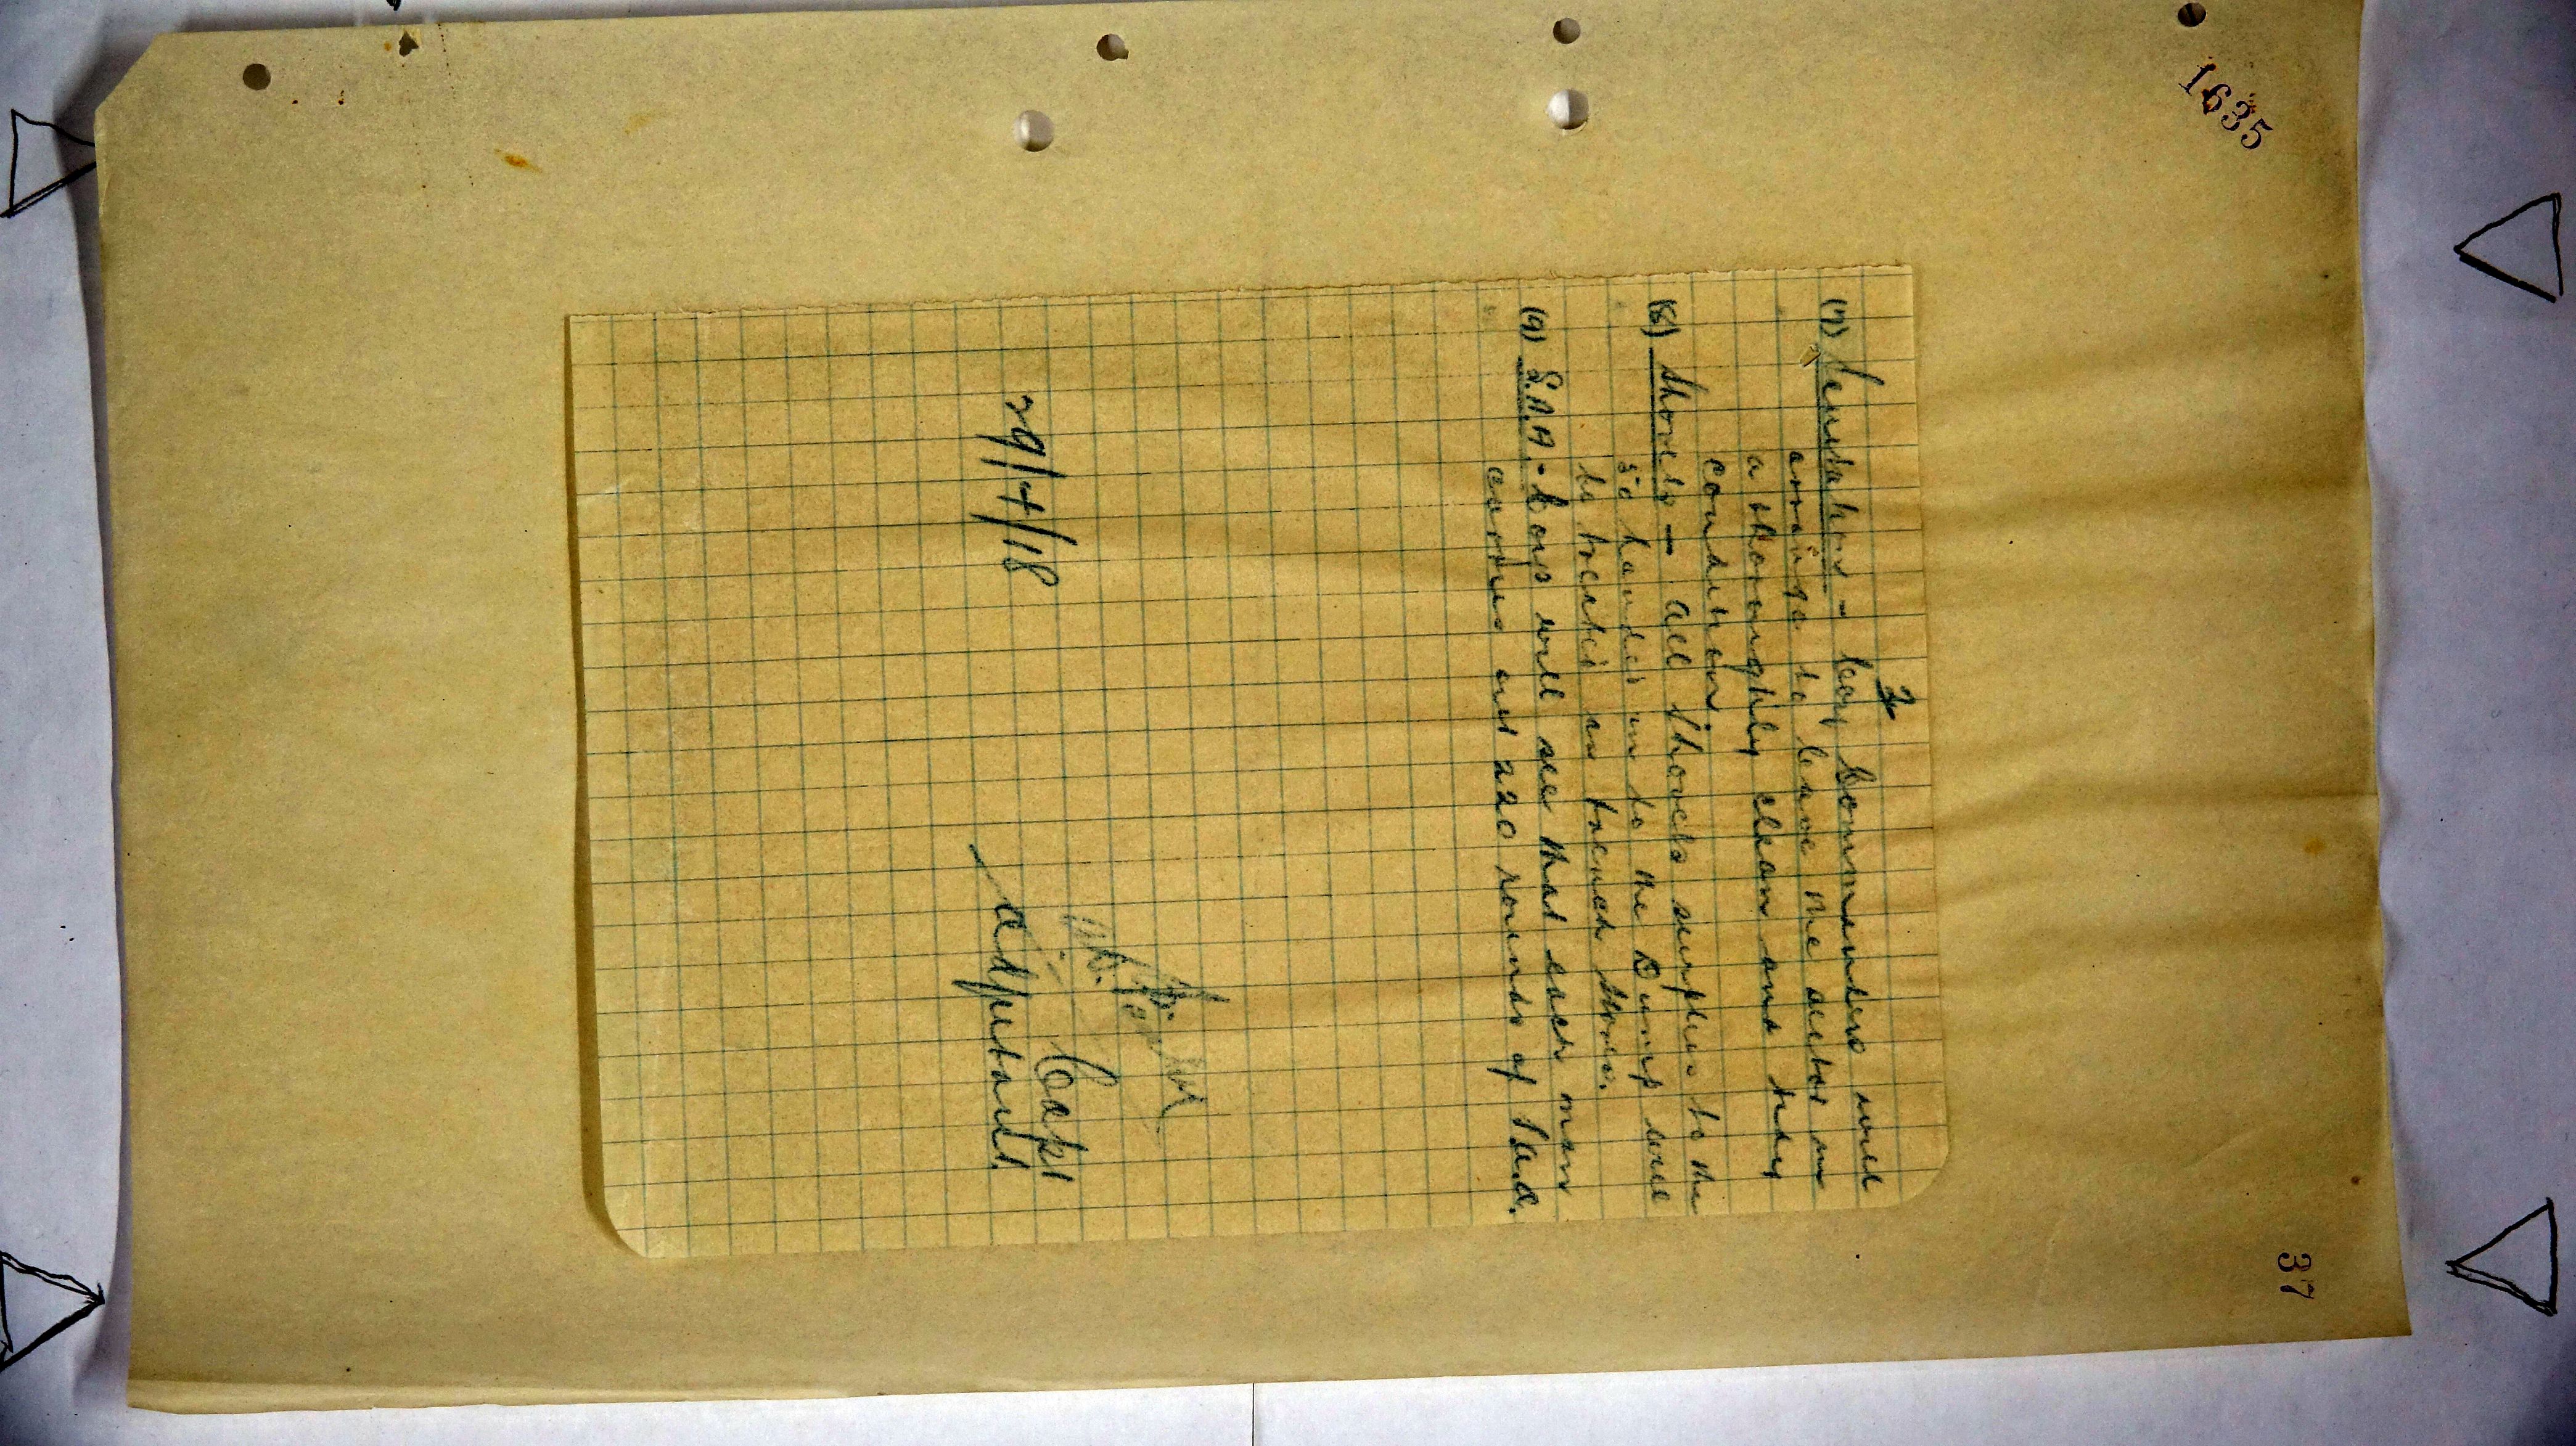 1635
37
2
(7) Sanitation - Coy Commanders will
arrange to leave the sector in
a thoroughly clean and tidy
condition.
(8) Shovels - All shovels surplus to the
50 handed in to the Dump will
be treated as trench stores.
(9) S.A.A. - Coys will see that each man
carries out 220 rounds of S.A.A.
Capt
Adjutant.
29/4/18